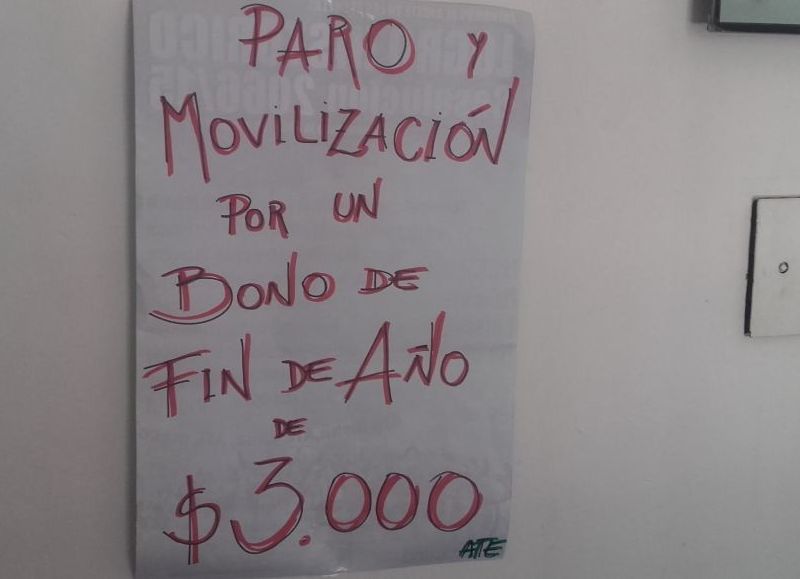 PARO Y
MOVILIZACIÓN
POR UN
BONO DE
FIN DE AÑO
DE
$3.000
ATE